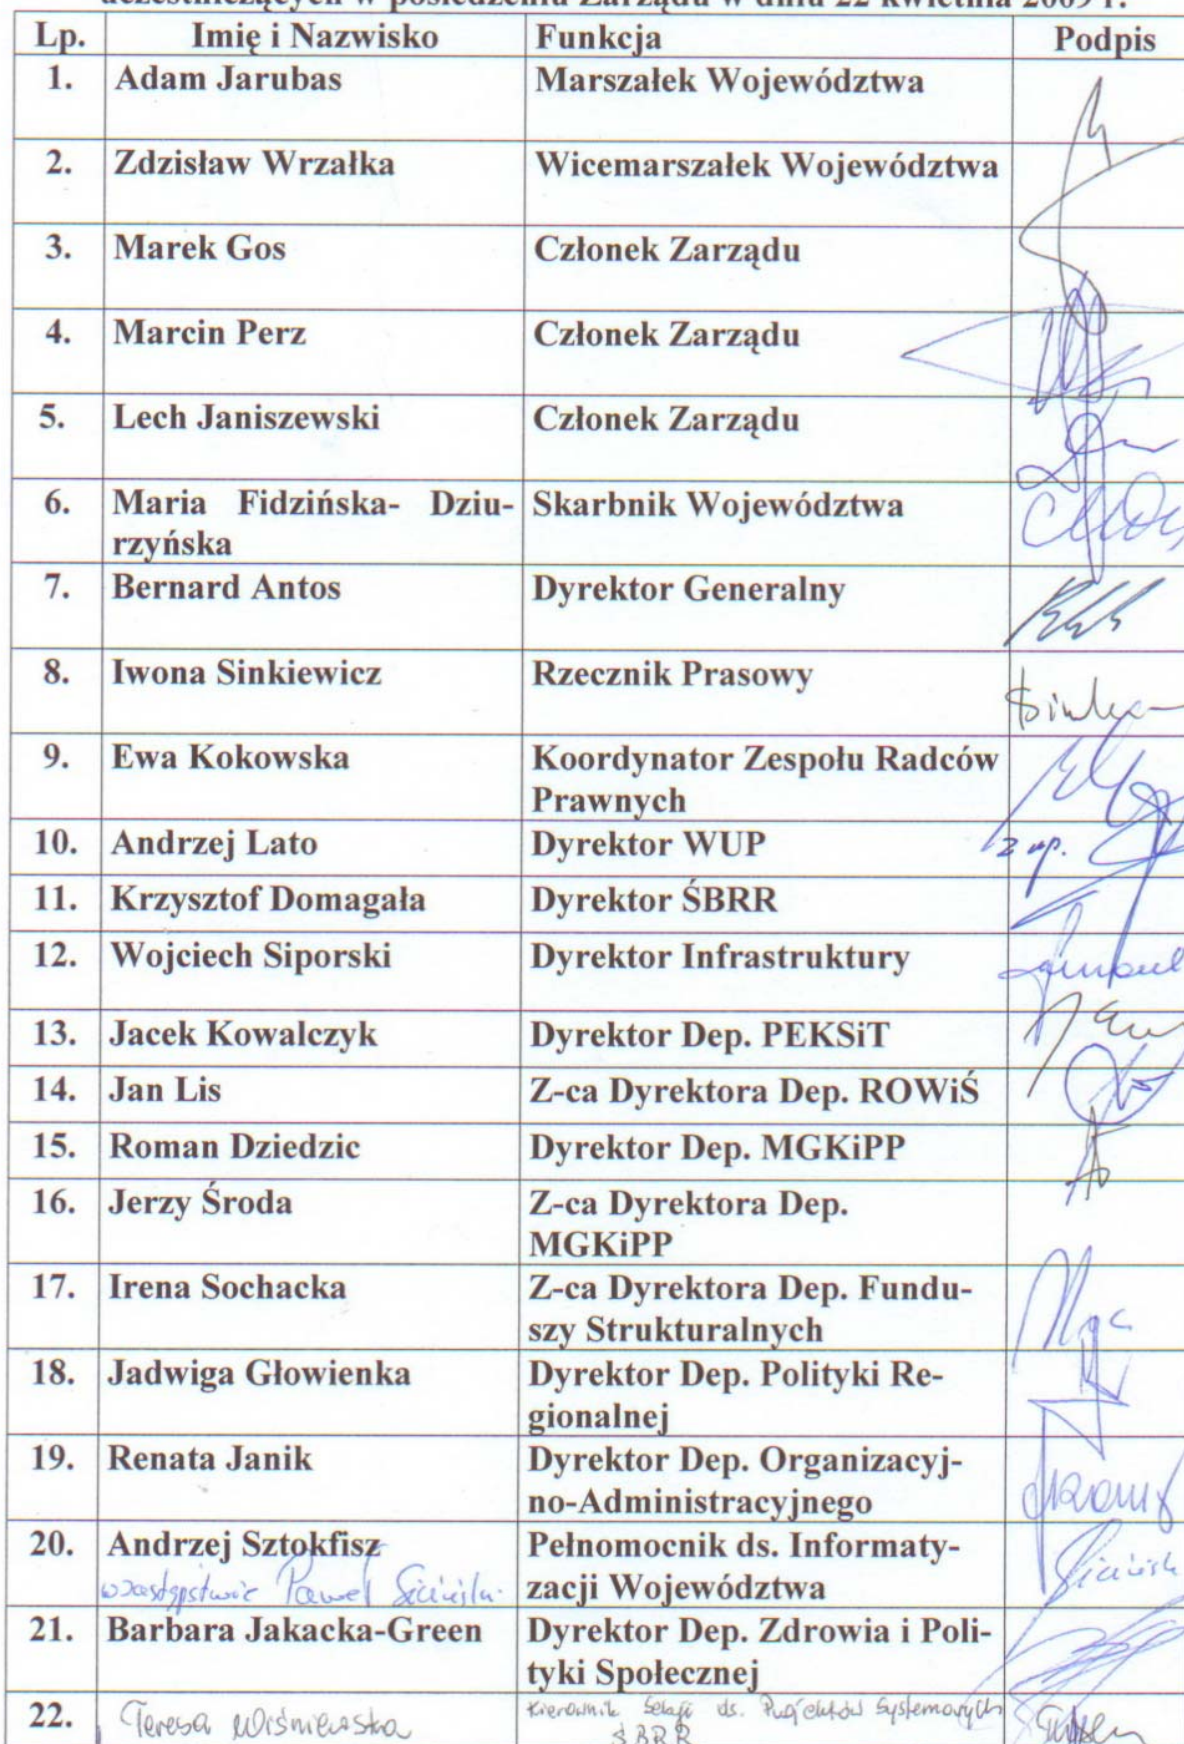 uczestniczących w posiedzeniu Zarządu w dniu 22 kwietnia 2009 r.
Lp. Imię i Nazwisko Funkcja Podpis
1. Adam Jarubas Marszałek Województwa
2. Zdzisław Wrzałka Wicemarszałek Województwa
3. Marek Gos Członek Zarządu
4. Marcin Perz Członek Zarządu
5. Lech Janiszewski Członek Zarządu
6. Maria Fidzińska- Dziu- Skarbnik Województwa
rzyńska
7. Bernard Antos Dyrektor Generalny
8. Iwona Sinkiewicz Rzecznik Prasowy
9. Ewa Kokowska Koordynator Zespołu Radców
Prawnych
10. Andrzej Lato Dyrektor WUP z up.
11. Krzysztof Domagała Dyrektor ŚBRR
12. Wojciech Siporski Dyrektor Infrastruktury
13. Jacek Kowalczyk Dyrektor Dep. PEKSiT
14. Jan Lis Z-ca Dyrektora Dep. ROWiŚ
15. Roman Dziedzic Dyrektor Dep. MGKiPP
16. Jerzy Środa Z-ca Dyrektora Dep.
MGKiPP
17. Irena Sochacka Z-ca Dyrektora Dep. Fundu-
szy Strukturalnych
18. Jadwiga Głowienka Dyrektor Dep. Polityki Re-
gionalnej
19. Renata Janik Dyrektor Dep. Organizacyj-
no-Administracyjnego
20. Andrzej Sztokfisz Pełnomocnik ds. Informaty-
w zastępstwie Paweł Siciński zacji Województwa
21. Barbara Jakacka-Green Dyrektor Dep. Zdrowia i Poli-
tyki Społecznej
22. Teresa Wiśniewska Kierownik Sekcji ds. Projektów Systemowych
ŚBRR